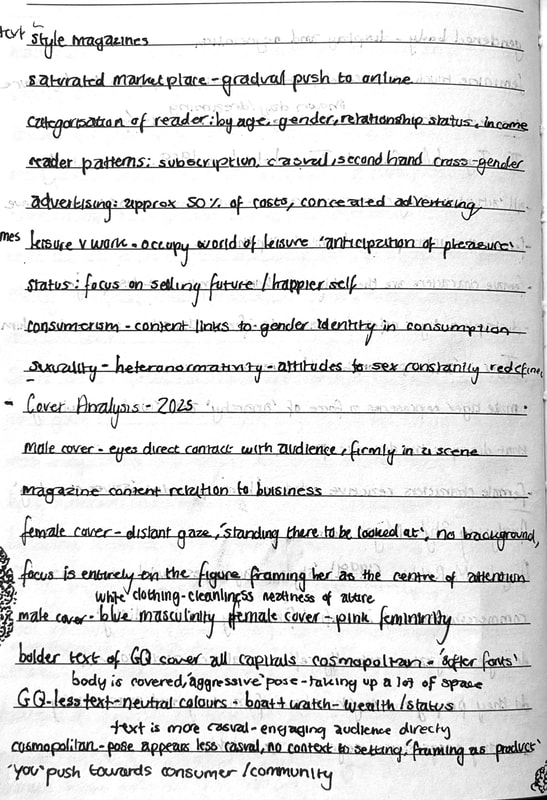 text
style magazines
saturated marketplace - gradual push to online
categorisation of reader: by age, gender, relationship status, income
reader patterns: subscription, casual, second hand cross-gender
advertising: approx 50% of costs, concealed advertising
mes leisure v work - occupy world of leisure 'anticipation of pleasure'
status: focus on selling future / happier self
consumerism - content links to gender identity in consumption
sexuality - heteronormativity - attitudes to sex constantly redefine
- Cover Analysis - 2025
male cover - eyes direct contact with audience, firmly in a scene
magazine content relation to buisness
female cover - distant gaze, 'standing there to be looked at', no background,
focus is entirely on the figure framing her as the centre of attention
white clothing - cleanliness neatness of attire
male cover - blue masculinity female cover - pink femininity
bolder text of GQ cover all capitals cosmopolitan - 'softer fonts'
body is covered, 'aggressive' pose - taking up a lot of space
GQ - less text - neutral colours - boat + watch - wealth / status
text is more casual - engaging audience directly
cosmopolitan - pose appears less casual, no context to setting, 'framing as product'
'you' push towards consumer / community